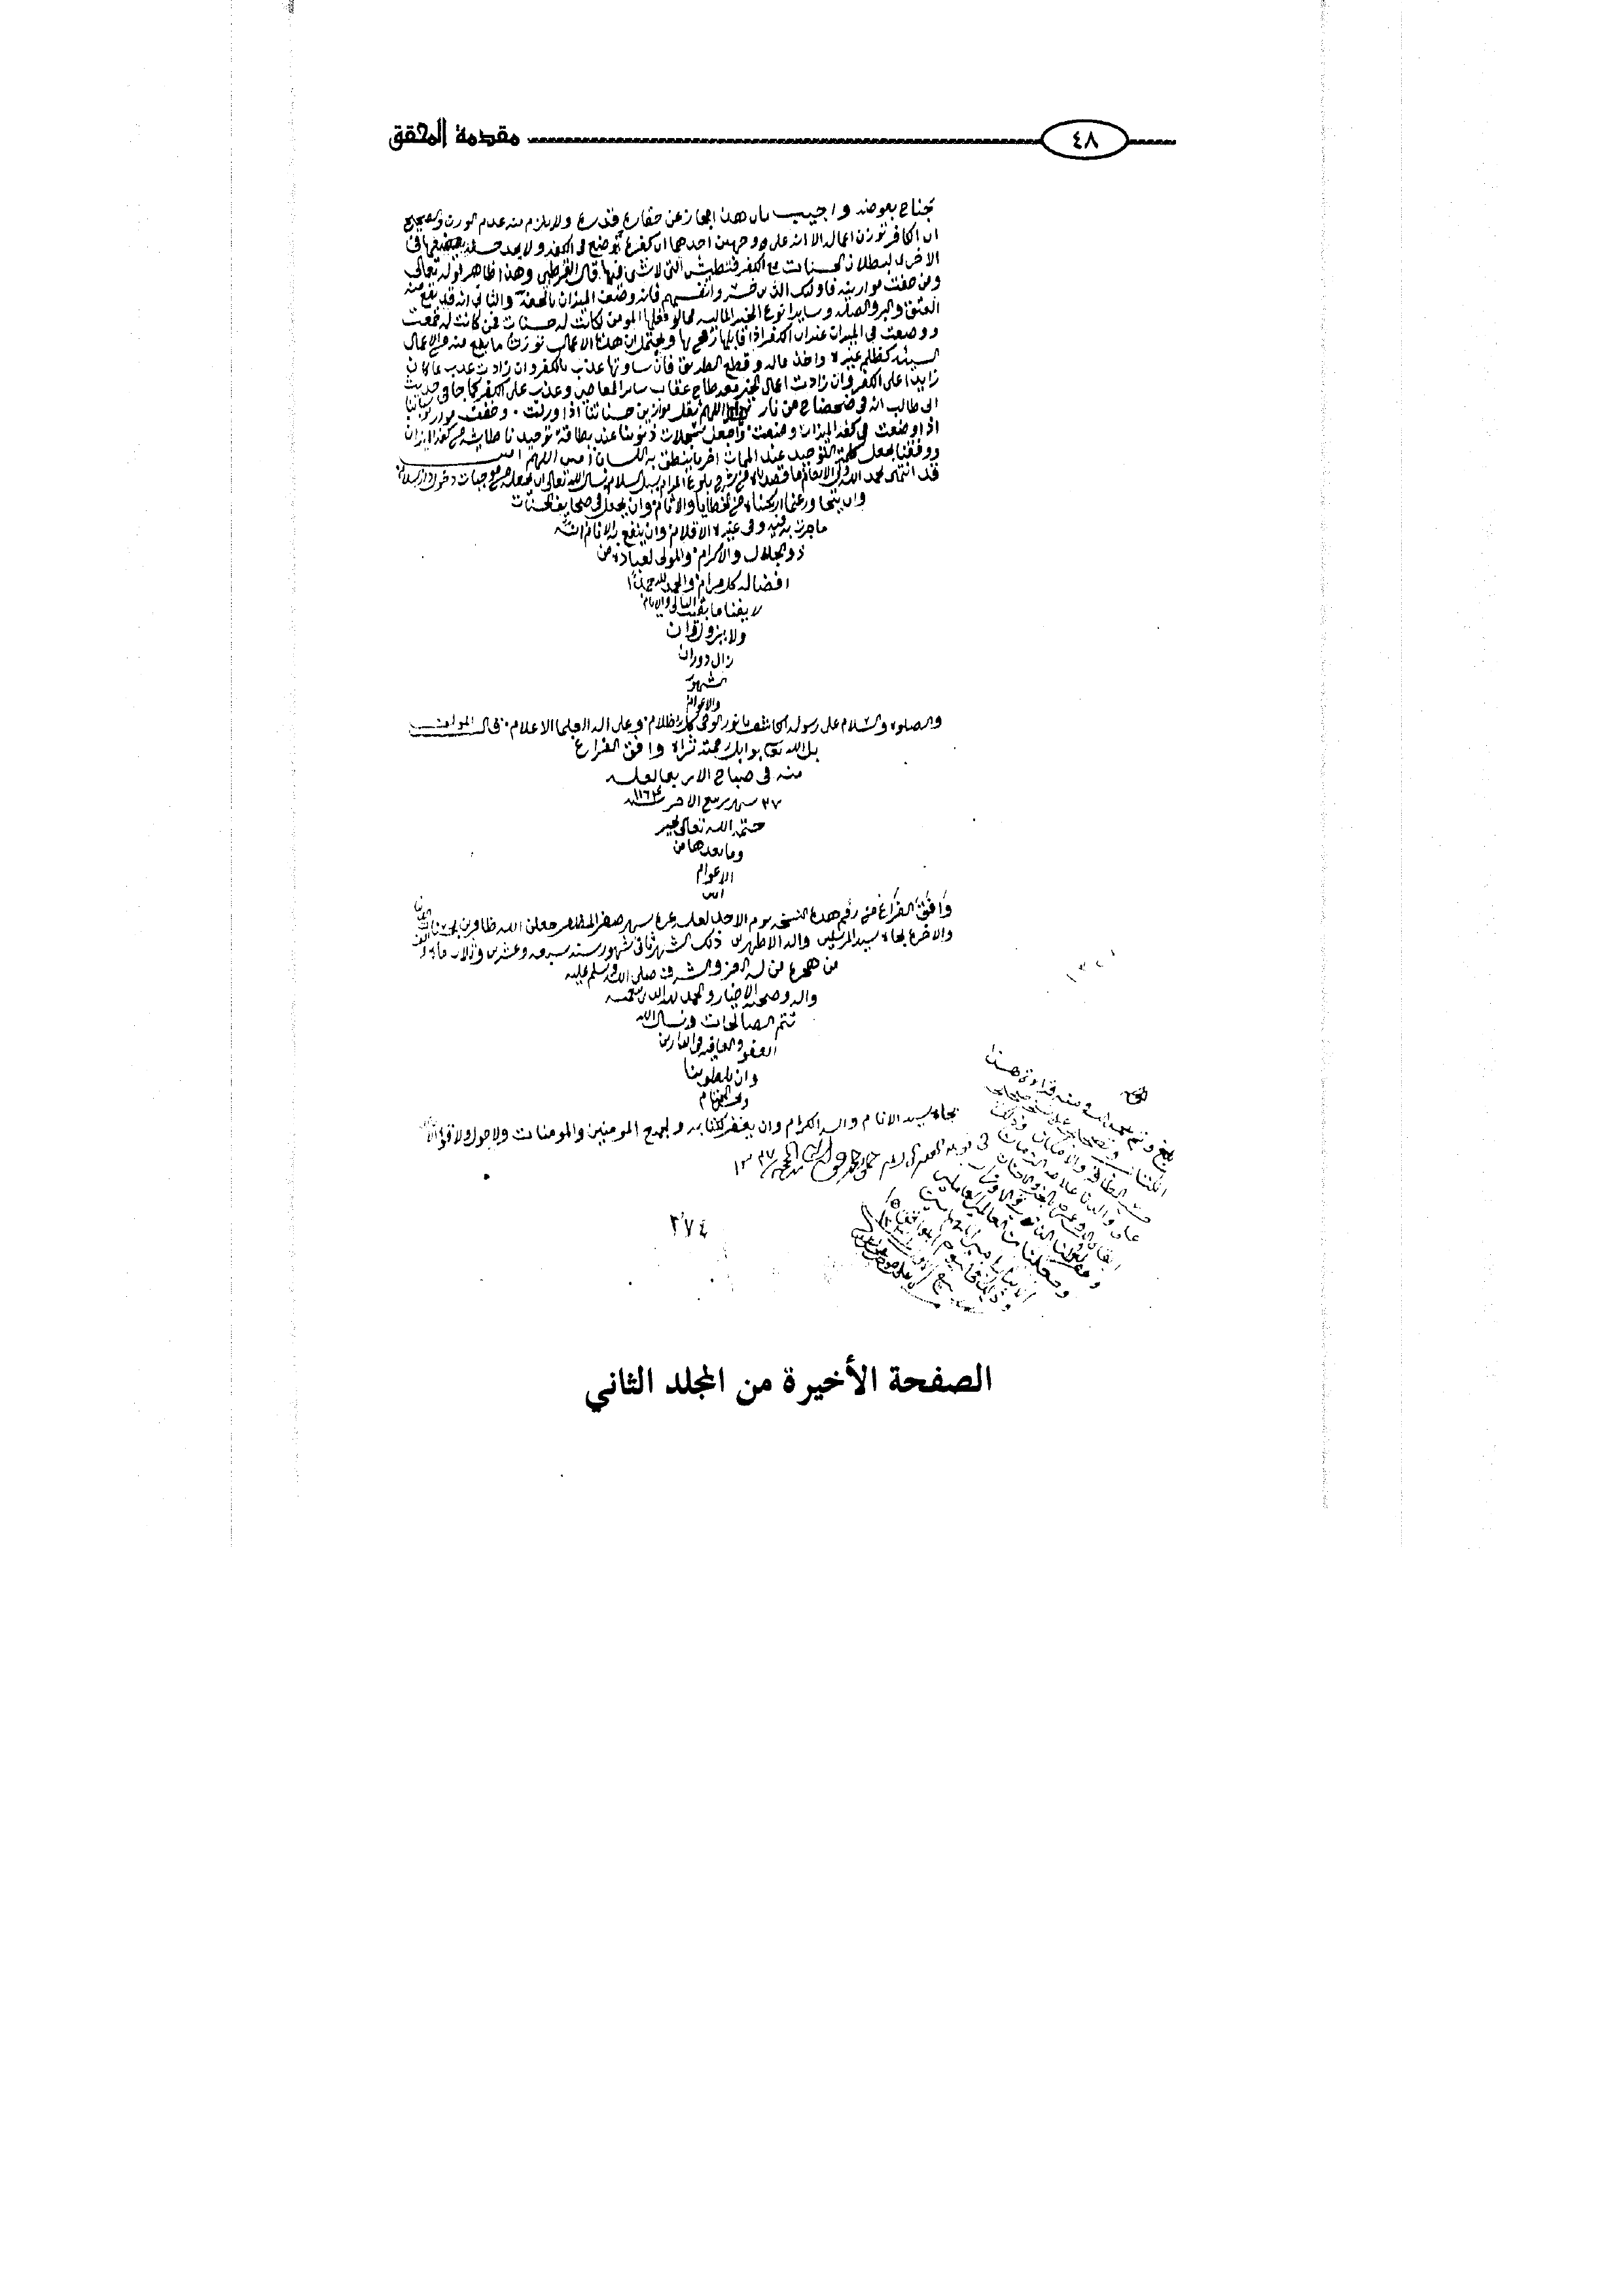 ٤٨ مقدمة المحقق
جناح بعوضه واجيب بان هذا مجاز عن حقارة قدره ولا يلزم منه عدم الوزن والصحيح
ان الكافر توزن اعماله الا انه على وجهين احدهما ان كفره يوضع في الكفه ولا يجد حسنة يضعها في
الاخرى لبطلان الحسنات مع الكفر فتطيش التي لا شي فيها قال القرطبي وهذا ظاهر قوله تعالى
ومن خفت موازينه فاولئك الذين خسروا انفسهم فانه وصف الميزان بالخفة والثاني انه قد يقع منه
العتق والبر والصله وساير انوع الخير الماليه مما لو فعلها المومن لكانت له حسنات فمن كانت له جمعت
ووضعت في الميزان غير ان الكفر اذا قابلها رجح بها ويحتمل ان هذه الاعمال توزن ما يقع منه من الاعمال
السيئه كظلم غيره واخذ ماله وقطع الطريق فان ساوتها عذب بالكفر وان زادت عذب بما كان
زايدا على الكفر وان زادت اعمال الخير معه طاح عقاب ساير المعاصي وعذب على الكفر كما جا في حديث
ابي طالب انه في ضحضاح من نار اللهم ثقل موازين حسناتنا اذا وزنت وخفف موازين سيئاتنا
اذا وضعت في كفة الميزان وضعت واجعل سجلات ذنوبنا عند بطاقة توحيدنا طايشه من كفة الميزان
ووفقنا لجعل كلمة التوحيد عند الممات اخر ما ينطق به اللسان امين اللهم امين
قد انتهى بحمد الله ولي الانعام ما قصدناه من شرح بلوغ المرام سبل السلام نسال الله تعالى ان يجعله من موجبات دخول دار السلام
وان يتجاوز عما ارتكبناه من الخطايا والاثام وان يجعل في صحايف الحسنات
ما جرت به فيه وفي غيره الاقلام وان ينفع به الانام انه
ذو الجلال والاكرام والمولي لعباده من
افضاله كل مرام والحمد لله حمدا
لا يفنا ما بقيت الليالي والايام
ولا يزول وان
زال دوران
الشهور
والاعوام
والصلوة والسلام على رسوله الكاشف بانوار الوحي كل ظلام وعلى اله العلما الاعلام قال المولف
بل الله تعالى بوابل رحمته ثراه وافق الفراغ
منه في صباح الاربعا لعله
٢٧ شهر ربيع الاخر سنه ١١٦٤
ختمها الله تعالى بخير
وما بعدها من
الاعوام
امين
وافق الفراغ من رقم هذه النسخه يوم الاحد لعله غرة شهر صفر المظفر جعلنا الله ظافرين بخيرات الدنيا
والاخره بجاه سيد المرسلين واله الاطهرين ذلك الشهر ثاني شهور سنه سبعه وعشرين وثلاث مايه والف
من هجرة من له العز والشرف صلى الله وسلم عليه
واله وصحبه الاخيار والحمد لله الذي بنعمته
تتم الصالحات ونسال الله
العفو والعافيه في الدارين
وان يلطف بنا
وحسن الختام
بجاه سيد الانام واله الكرام وان يغفر لكاتبه ولجميع المومنين والمومنات ولا حول ولا قوة الا بالله
٢٧٤
الصفحة الأخيرة من المجلد الثاني